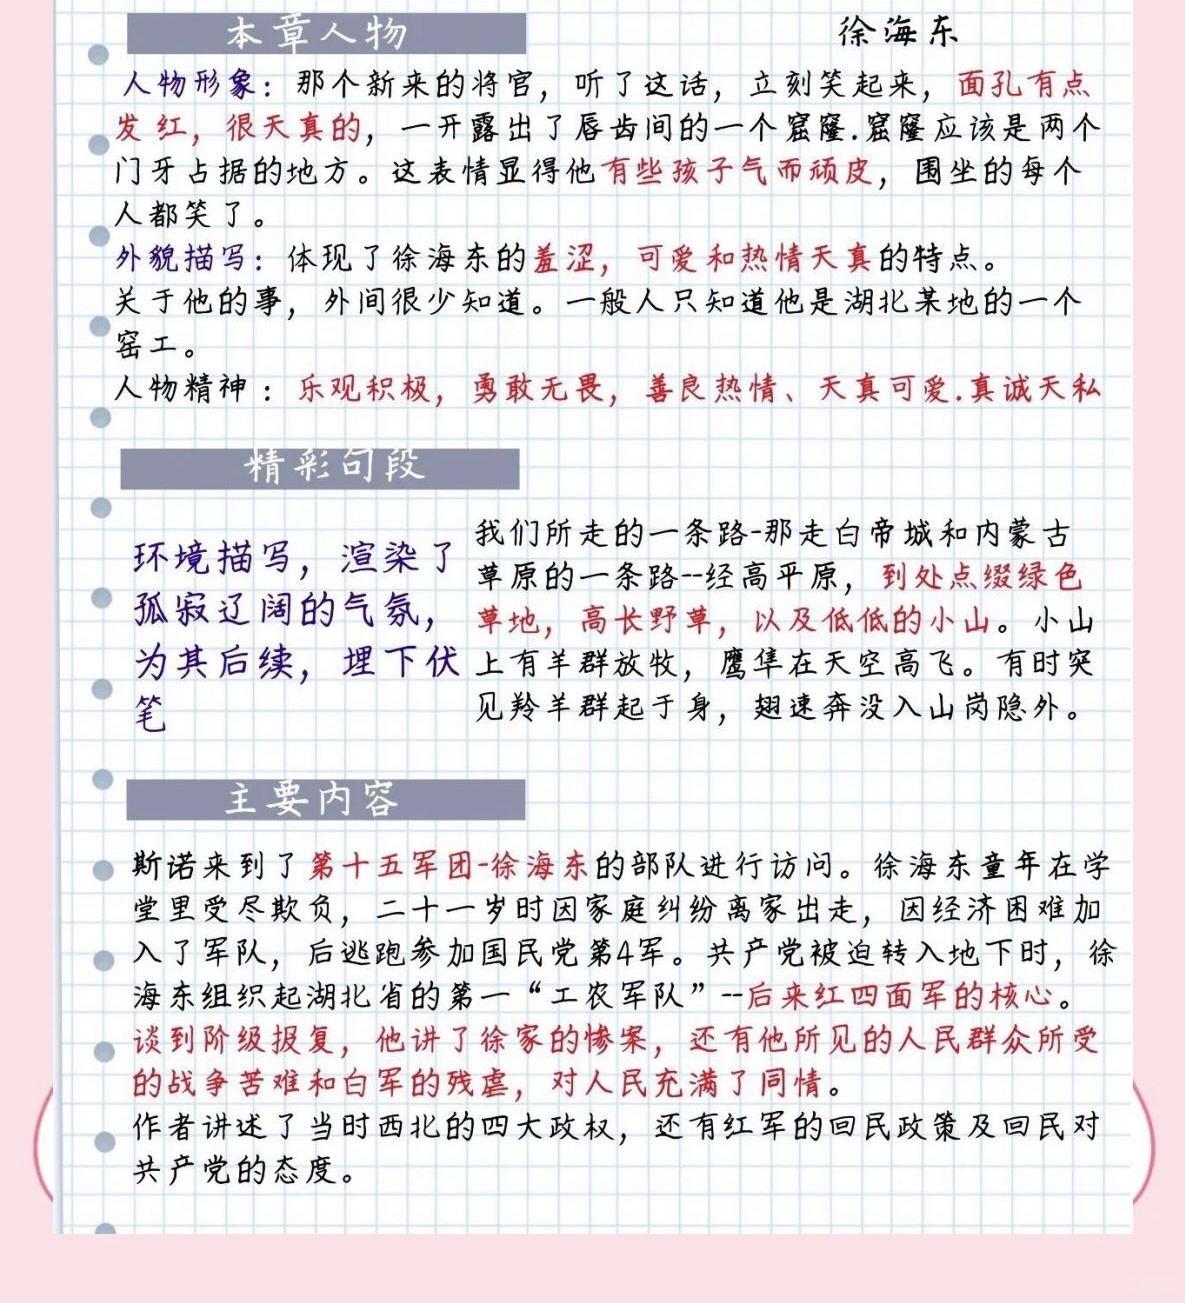 本章人物
徐海东
人物形象：那个新来的将官，听了这话，立刻笑起来，面孔有点
发红，很天真的，一开露出了唇齿间的一个窟窿.窟窿应该是两个
门牙占据的地方。这表情显得他有些孩子气而顽皮，围坐的每个
人都笑了。
外貌描写：体现了徐海东的羞涩，可爱和热情天真的特点。
关于他的事，外间很少知道。一般人只知道他是湖北某地的一个
窑工。
人物精神：乐观积极，勇敢无畏，善良热情、天真可爱.真诚天私
精彩句段
环境描写，渲染了
孤寂辽阔的气氛，
为其后续，埋下伏
笔
我们所走的一条路-那走白帝城和内蒙古
草原的一条路--经高平原，到处点缀绿色
草地，高长野草，以及低低的小山。小山
上有羊群放牧，鹰隼在天空高飞。有时突
见羚羊群起于身，翅速奔没入山岗隐外。
主要内容
斯诺来到了第十五军团-徐海东的部队进行访问。徐海东童年在学
堂里受尽欺负，二十一岁时因家庭纠纷离家出走，因经济困难加
入了军队，后逃跑参加国民党第4军。共产党被迫转入地下时，徐
海东组织起湖北省的第一“工农军队”--后来红四面军的核心。
谈到阶级报复，他讲了徐家的惨案，还有他所见的人民群众所受
的战争苦难和白军的残虐，对人民充满了同情。
作者讲述了当时西北的四大政权，还有红军的回民政策及回民对
共产党的态度。